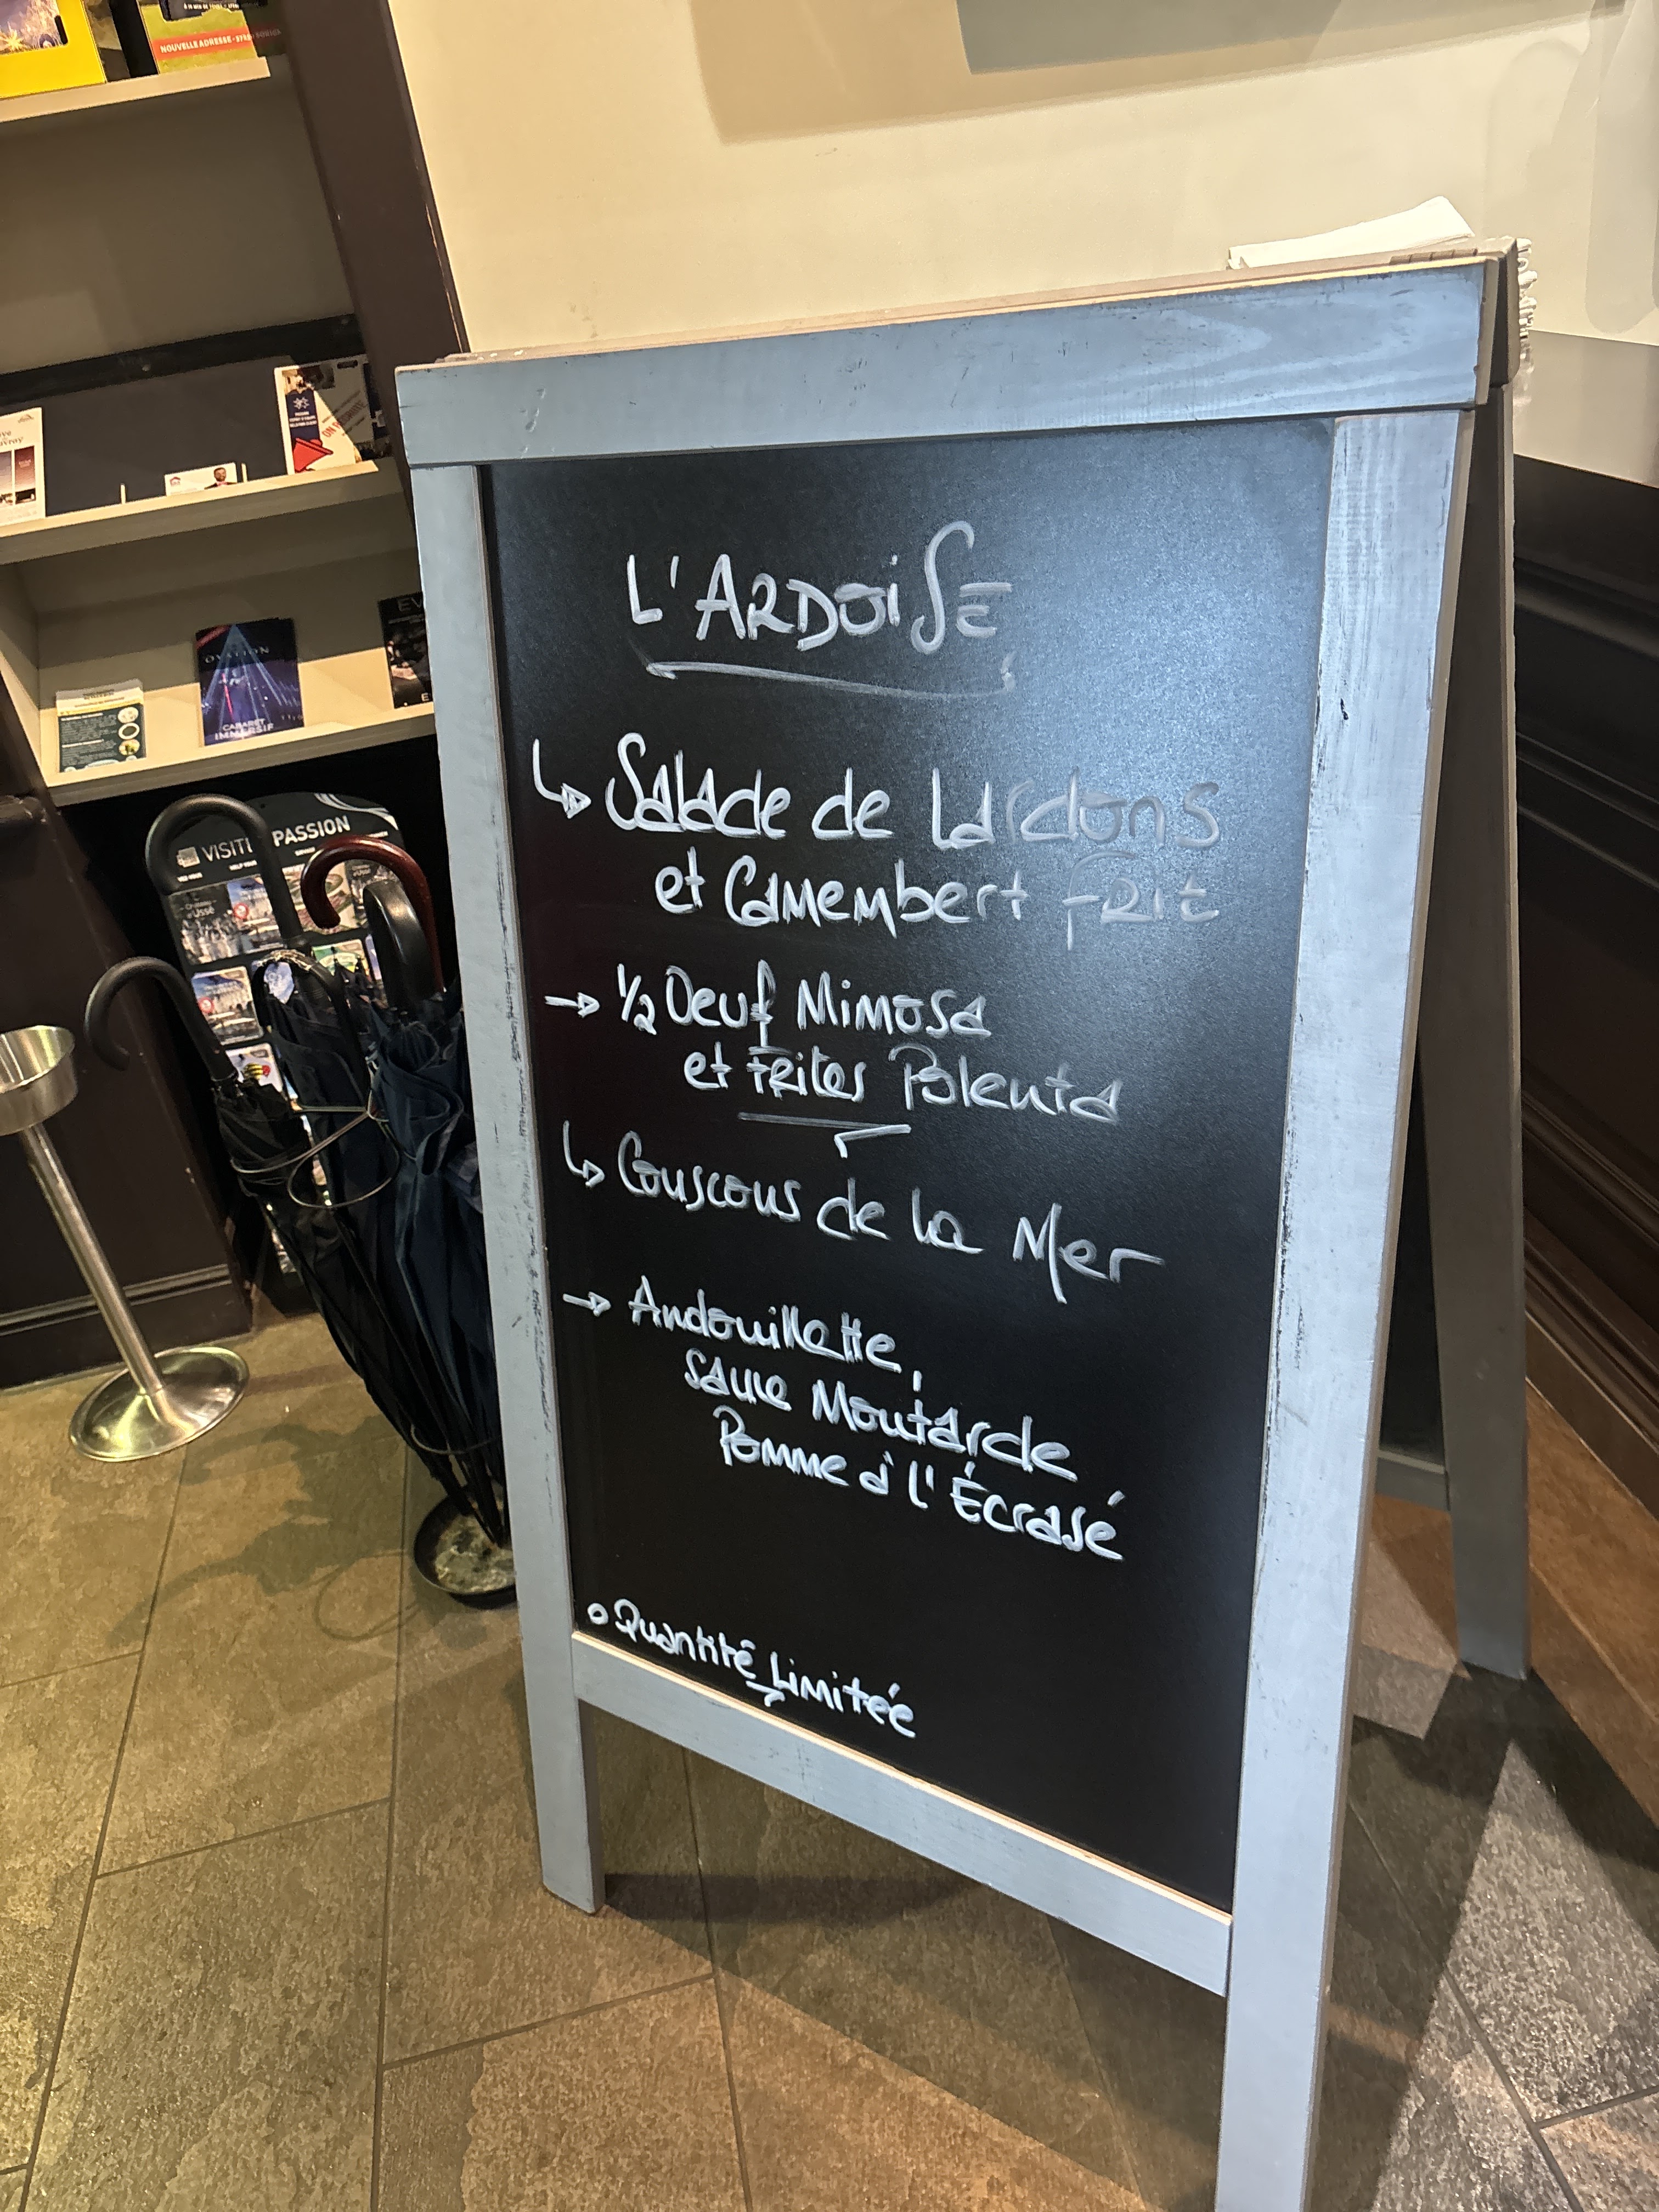 NOUVELLE ADRESSE
ON
OVATION
CABARET
IMMERSIF
EV
VISIT
PASSION
Ussé
L'ARDOISE
↳ Salade de Lardons
et Camembert FRIT
→ 1/2 Oeuf Mimosa
et FRites Polenta
↳ Couscous de la Mer
→ Andouillette,
sauce Moutarde
Pomme à l'Écrasé
o Quantité Limitée